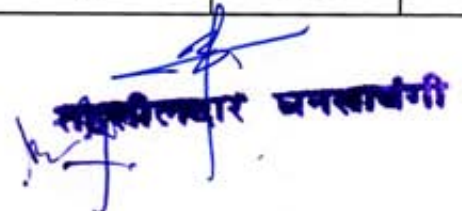 तहसीलदार घनसावंगी